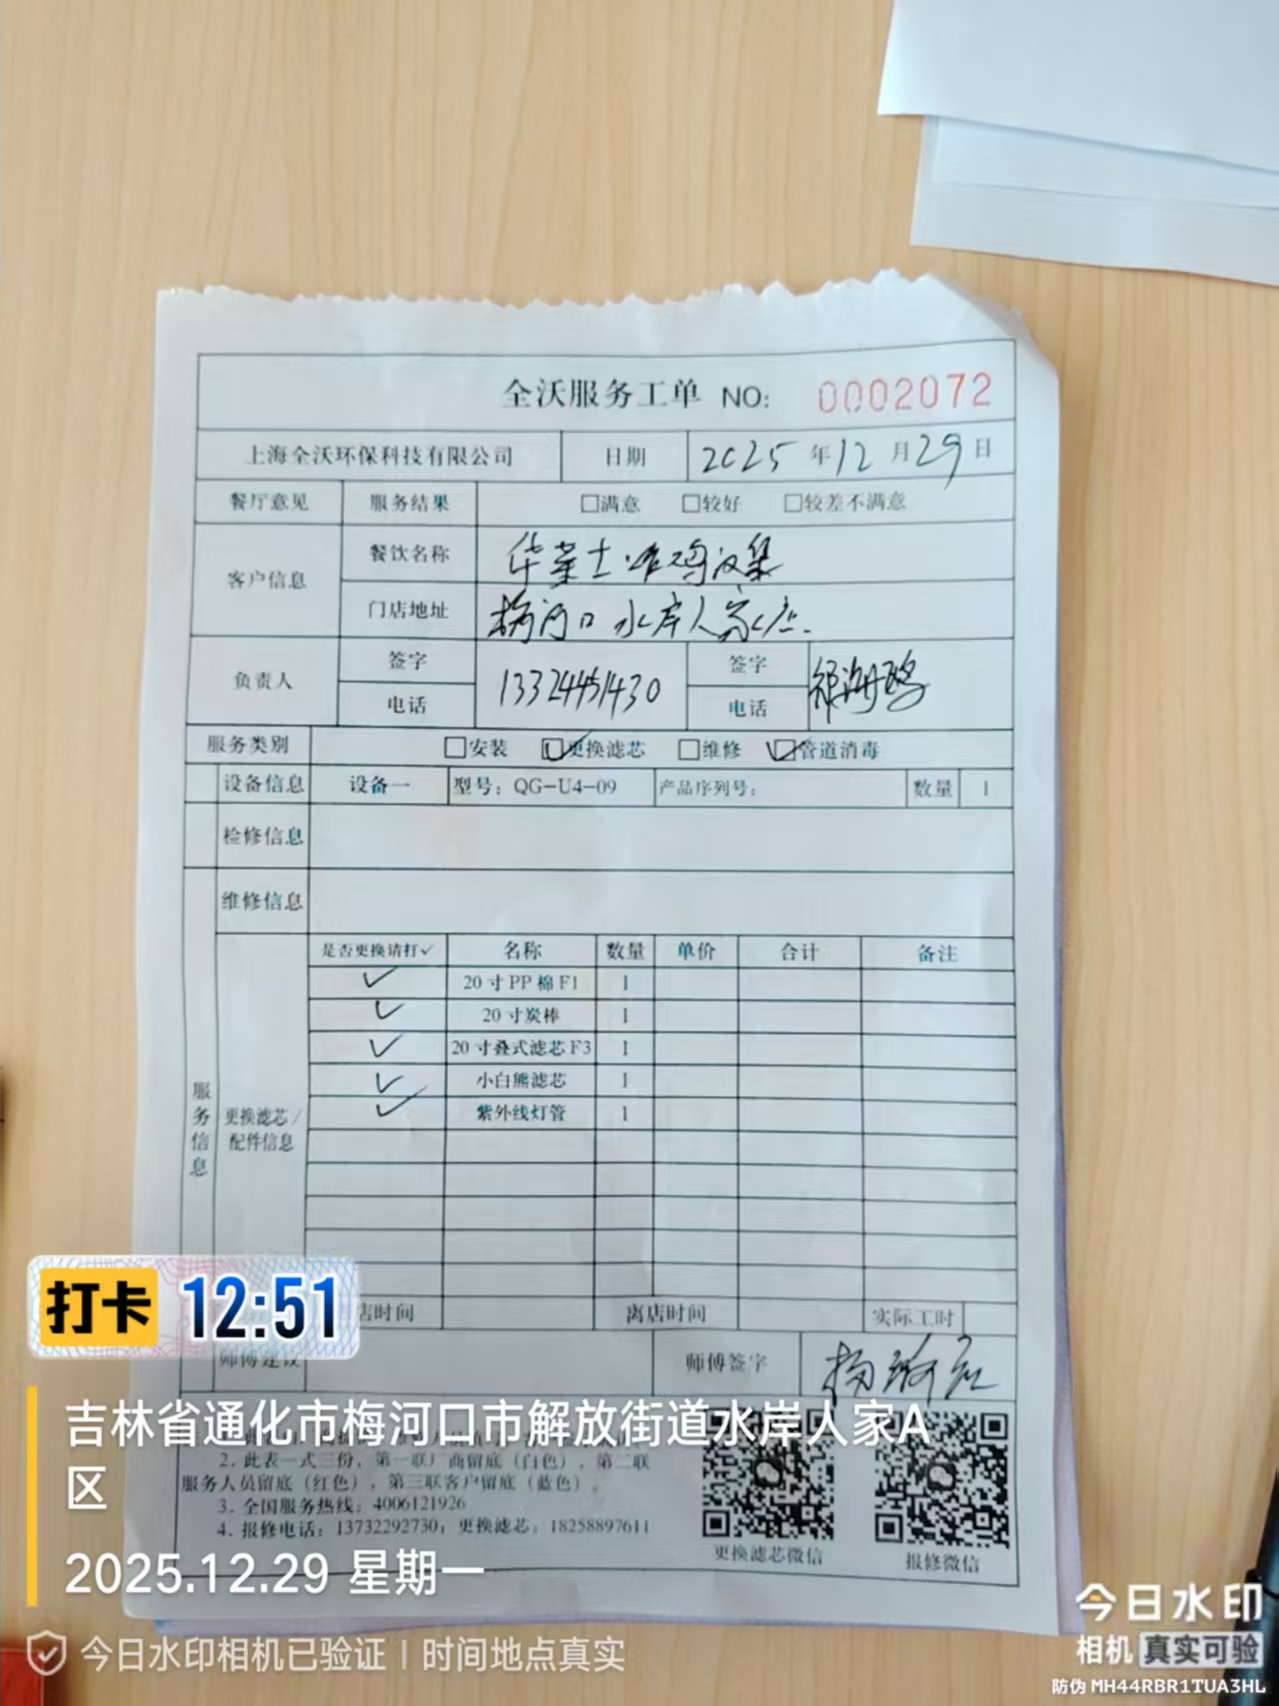 全沃服务工单 NO: 0002072
上海全沃环保科技有限公司 日期 2025年12月29日
餐厅意见 服务结果 □满意 □较好 □较差不满意
客户信息
餐饮名称 华莱士·炸鸡汉堡
门店地址 梅河口水岸人家店.
负责人 签字 电话 13324451430 签字 电话
服务类别 □安装 ☑更换滤芯 □维修 ☑管道消毒
设备信息 设备一 型号：QG-U4-09 产品序列号： 数量 1
检修信息
维修信息
服务信息
更换滤芯/配件信息
是否更换请打✓ 名称 数量 单价 合计 备注
✓ 20寸PP棉F1 1
✓ 20寸炭棒 1
✓ 20寸叠式滤芯F3 1
✓ 小白熊滤芯 1
✓ 紫外线灯管 1
店时间 离店时间 实际工时
师傅建议 师傅签字
2. 此表一式三份，第一联厂商留底（白色），第二联
服务人员留底（红色），第三联客户留底（蓝色）。
3. 全国服务热线：4006121926
4. 报修电话：13732292730；更换滤芯：18258897611
更换滤芯微信 报修微信
打卡 12:51
吉林省通化市梅河口市解放街道水岸人家A
区
2025.12.29 星期一
今日水印相机已验证 | 时间地点真实
今日水印
相机 真实可验
防伪 MH44RBR1TUA3HL